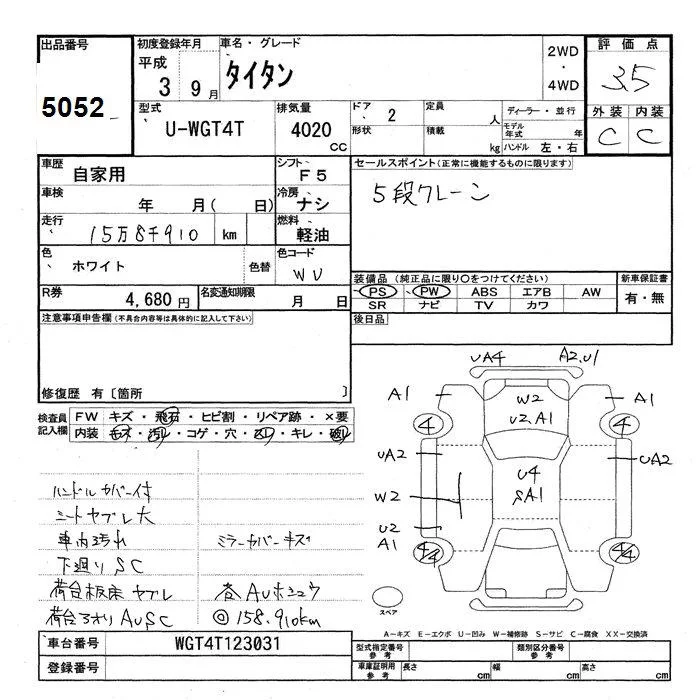 出品番号
5052
初度登録年月
平成
3 9月
車名・グレード
タイタン
2WD
・
4WD
評価点
3.5
型式
U-WGT4T
排気量
4020
CC
ドア
2
形状
定員
人
積載
kg
ディーラー・並行
モデル
年式 年
ハンドル 左・右
外装 内装
C C
車歴
自家用
シフト
F5
セールスポイント(正常に機能するものに限ります)
5段クレーン
車検
年 月( 日)
冷房
ナシ
走行
15万8千910 km
燃料
軽油
色
ホワイト
色替
色コード
WU
装備品(純正品に限り○をつけてください)
PS PW ABS エアB AW
SR ナビ TV カワ
新車保証書
有・無
R券
4,680円
名変通知期限
月 日
後日品
注意事項申告欄(不具合内容等は具体的に記入して下さい)
修復歴 有〔箇所 〕
検査員
記入欄
FW キズ・飛石・ヒビ割・リペア跡・×要
内装 キズ・汚れ・コゲ・穴・スレ・キレ・破れ
ハンドルカバー付
シートヤブレ大
車内汚れ
ミラーカバーキズ
下廻りSC
荷台板床ヤブレ
荷台アオリAUSC
◎158.910km
UA4 A2,U1
A1 W2 A1
U2,A1
4 4
UA2 UA2
U4
SA1
W2
U2
A1
4/4 4/4
スペア
A-キズ E-エクボ U-凹み W-補修跡 S-サビ C-腐食 XX-交換済
車台番号
WGT4T123031
登録番号
型式指定番号
参考
類別区分番号
参考
車庫証明用
参考
長さ cm 幅 cm 高さ cm